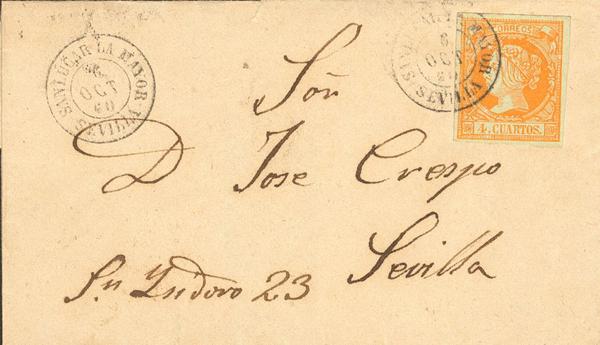 SANLUCAR LA MAYOR SEVILLA
OCT
60
MAYOR SEVILLA
6
OCT
60
CORREOS
4 CUARTOS.
Sor
D Jose Crespo
Sevilla
Sn Ysidoro 23